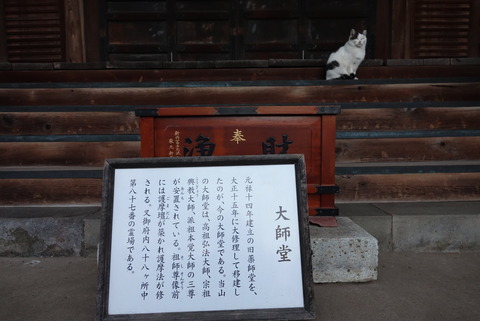 奉
浄
財
大師堂
元禄十四年建立の旧薬師堂を、
大正十五年に大修理して移建し
たのが、今の大師堂である。当山
の大師堂は、高祖弘法大師、宗祖
興教大師、派祖本覚大師の三尊
が安置されている。祖師尊像前
には護摩壇が築かれ護摩法が修
される。又御府内八十八ヶ所中
第八十七番の霊場である。